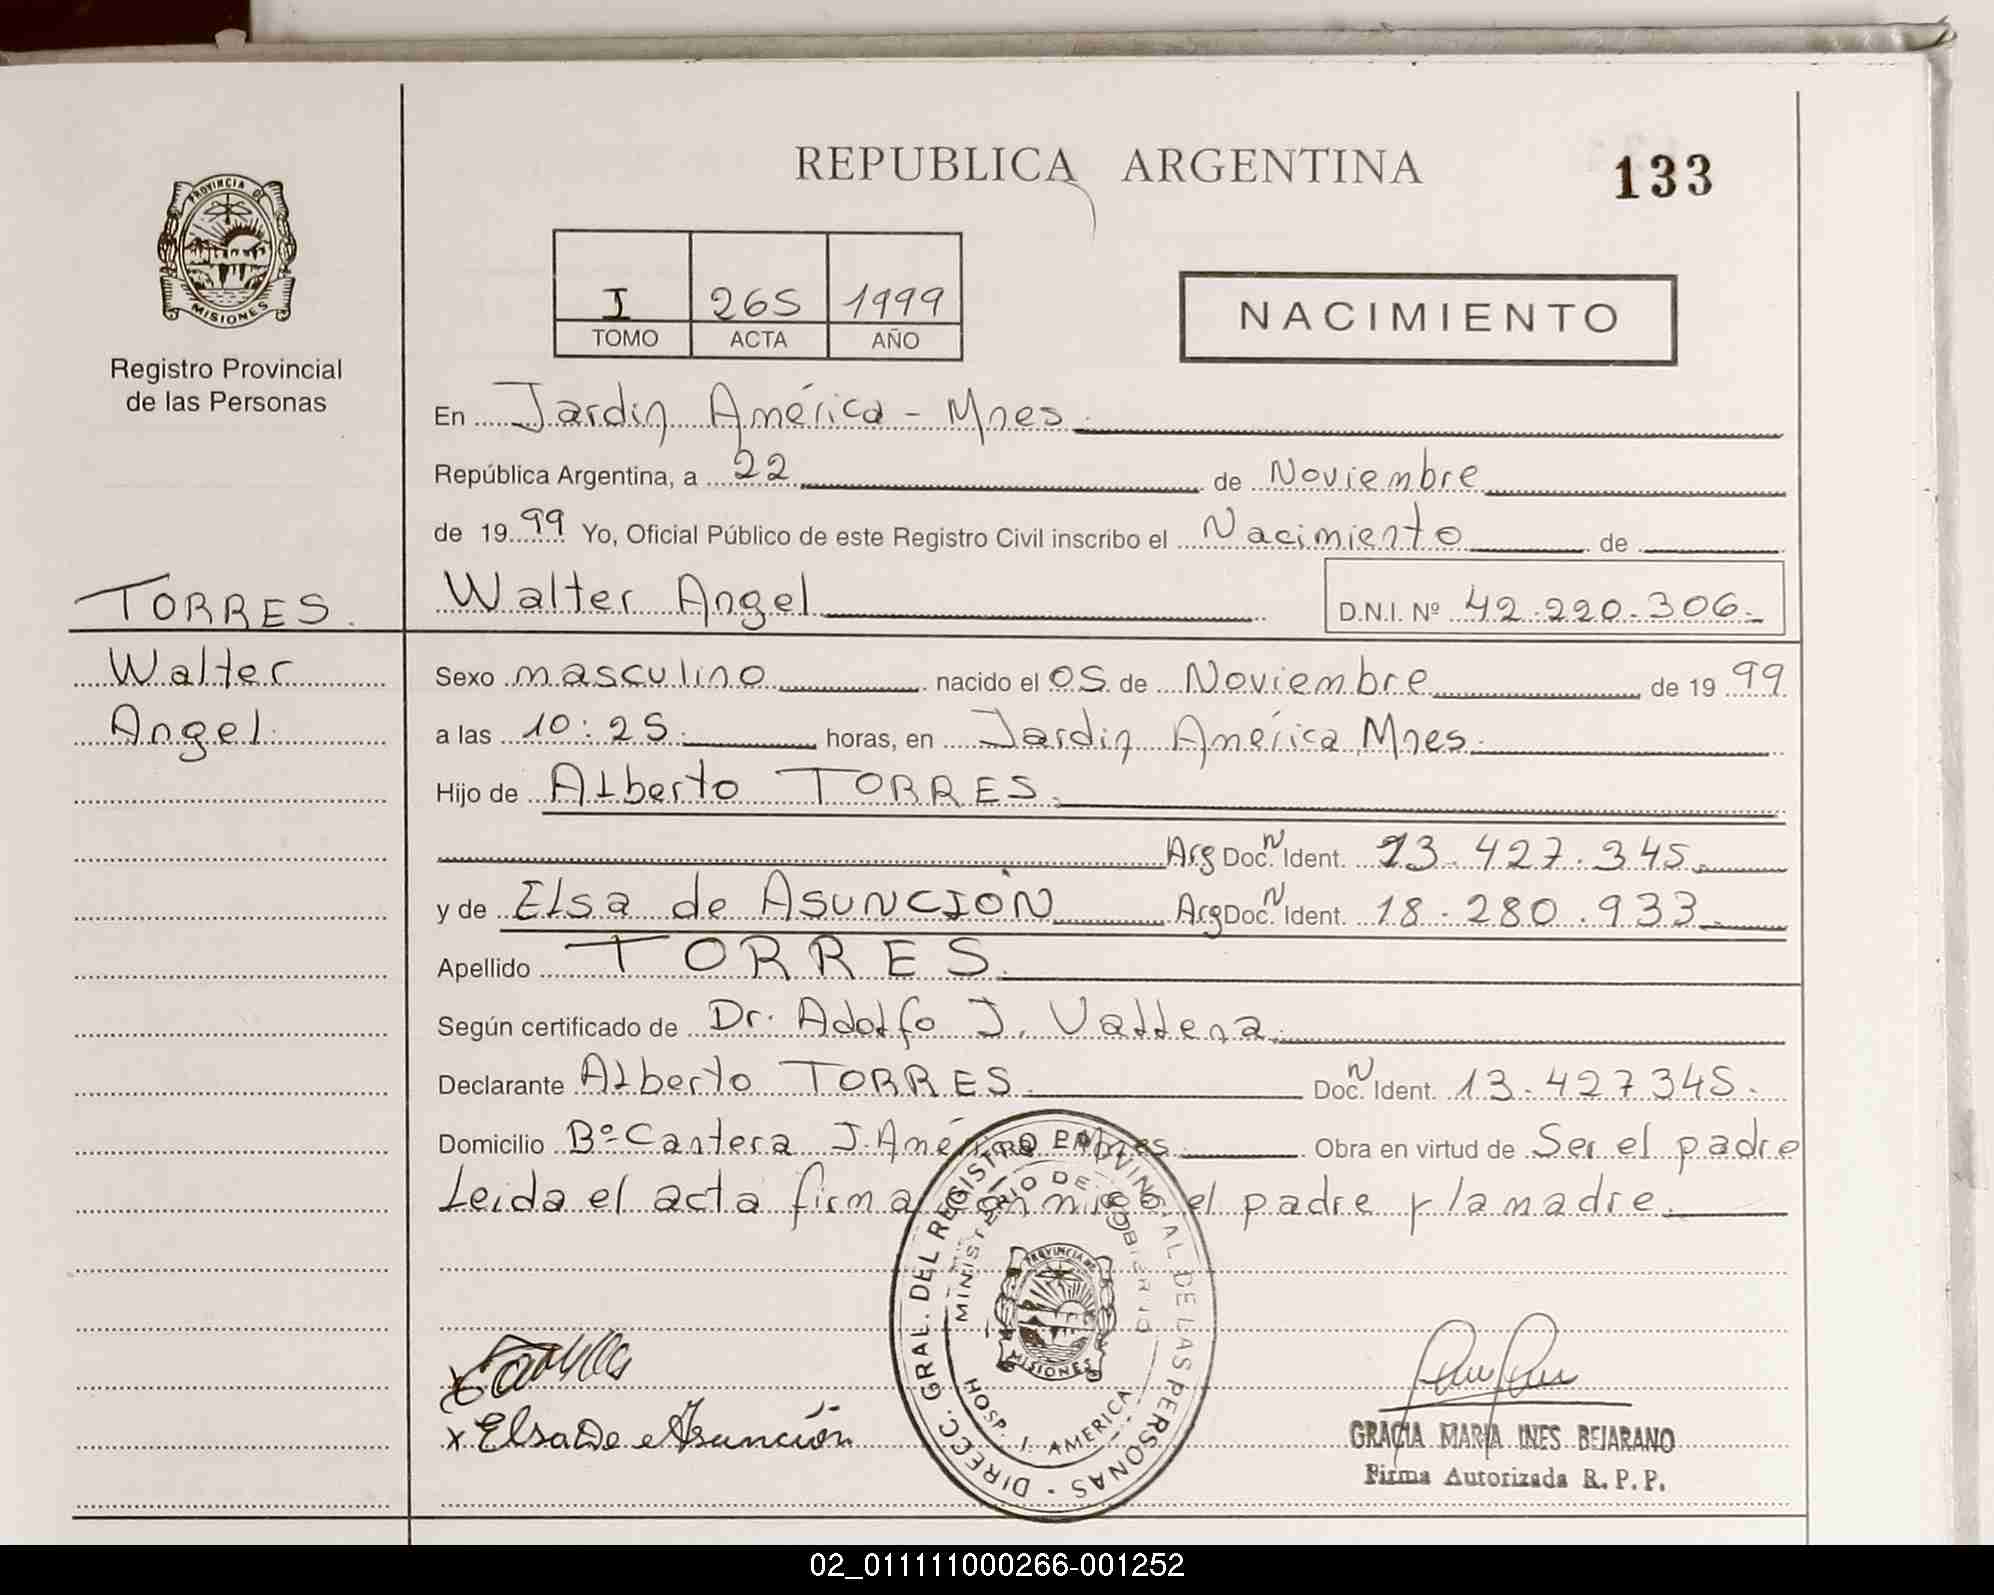 REPUBLICA ARGENTINA
133
PROVINCIA DE
MISIONES
Registro Provincial
de las Personas
I 265 1999
TOMO ACTA AÑO
NACIMIENTO
En Jardin América - Mnes.
República Argentina, a 22 de Noviembre
de 1999 Yo, Oficial Público de este Registro Civil inscribo el Nacimiento de
TORRES.
Walter
Angel.
Walter Angel D.N.I. Nº 42.220.306.-
Sexo masculino nacido el 05 de Noviembre de 1999
a las 10:25. horas, en Jardin América, Mnes.
Hijo de Alberto TORRES.
Arg Doc. N Ident. 13.427.345.
y de Elsa de ASUNCIÓN Arg Doc. N Ident. 18.280.933.
Apellido TORRES.
Según certificado de Dr. Adolfo J.
Declarante Alberto TORRES. Doc. N Ident. 13.427345.
Domicilio Bº Cantera J. América Mnes. Obra en virtud de Ser el padre
Leida el acta firma conmigo el padre y la madre.
DIRECC. GRAL. DEL REGISTRO PROVINCIAL DE LAS PERSONAS
MINISTERIO DE GOBIERNO
PROVINCIA DE
MISIONES
HOSP. J. AMERICA
x Elsa De Asunción
GRACIA MARIA INES BEJARANO
Firma Autorizada R. P. P.
02_011111000266-001252